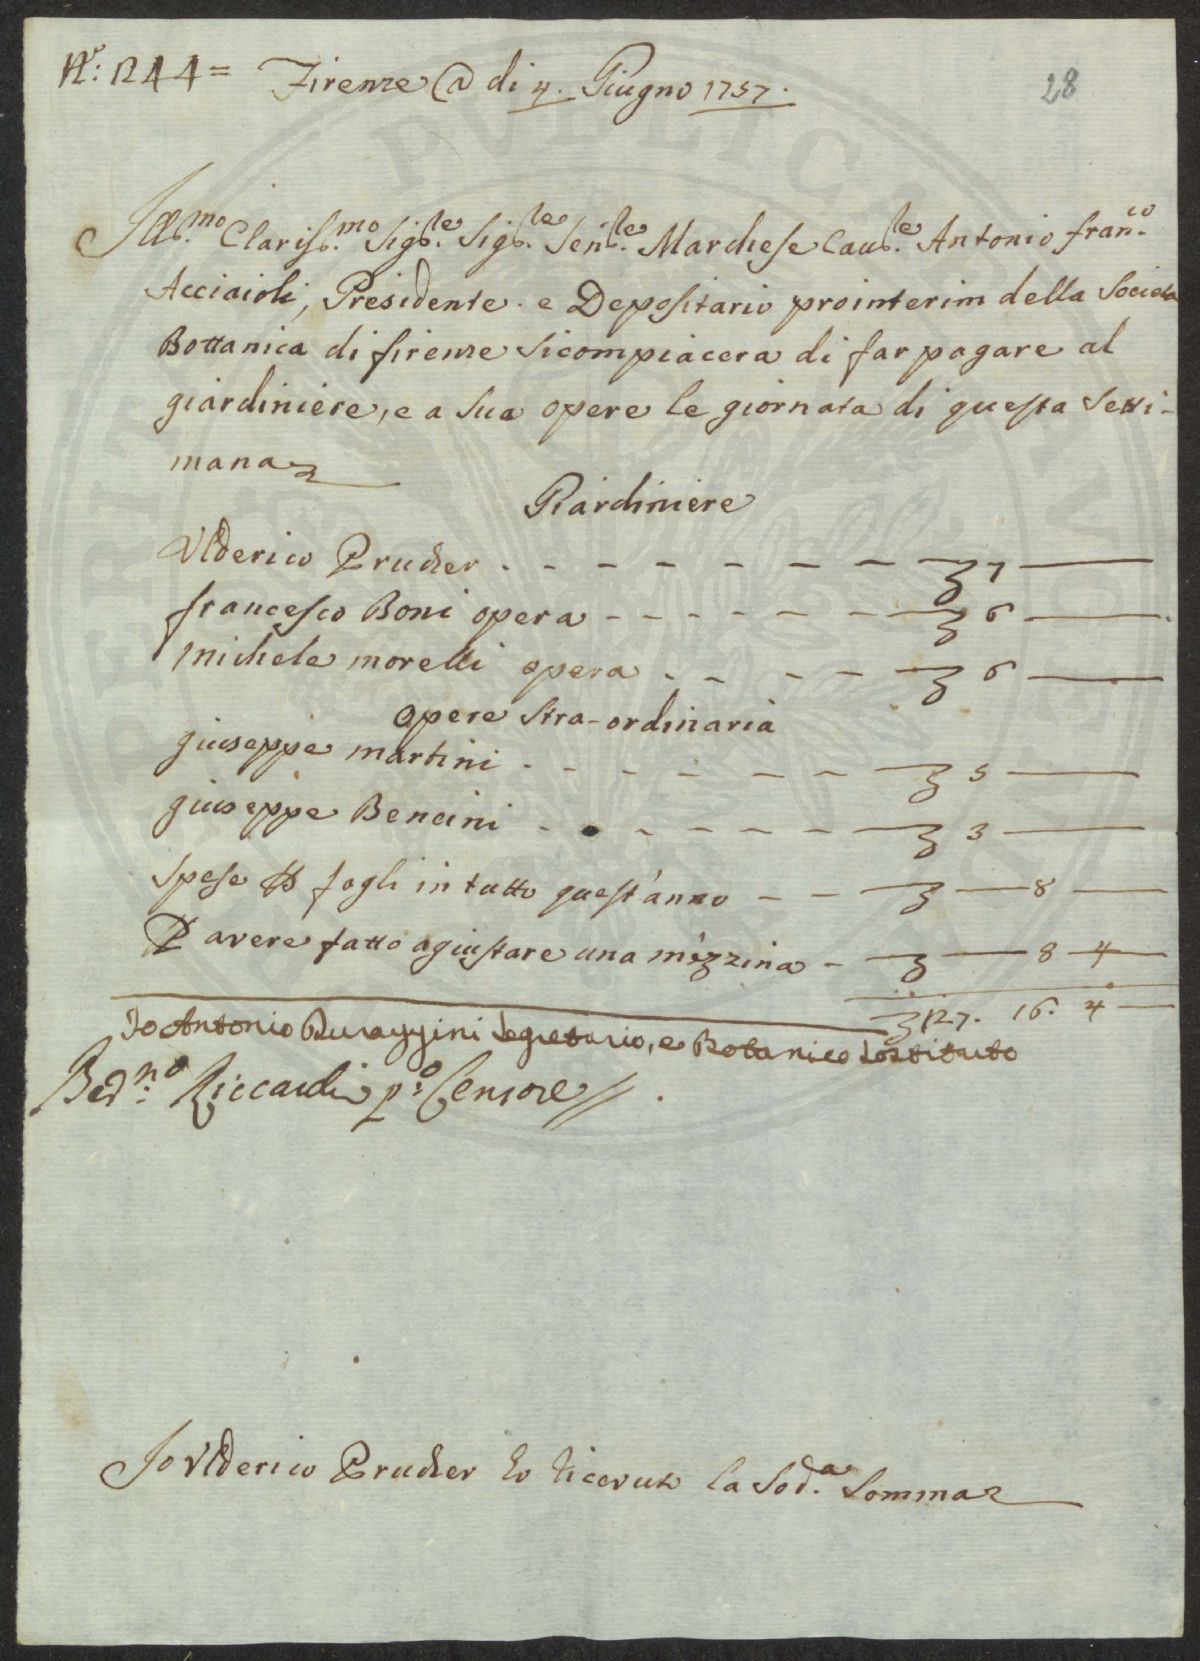 N.º: 1244 = Firenze @ di 4. Giugno 1757.
28
Ill.mo Clariss.mo Sig.re Sig.re Sen.re Marchese Cav.re Antonio Fran.co
Acciaioli, Presidente e Depositario prointerim della Societa
Bottanica di firenze si compiacera di far pagare al
giardiniere, e a sua opere le giornata di questa setti-
mana
Giardiniere
Ulderico Prucher . - - - - - - £ 7 —
francesco Boni opera - - - - - - £ 6 —
Michele morelli opera . - - - £ 6 —
opere stra-ordinaria
giuseppe martini . - - - - - £ 5 —
giuseppe Bencini - - - - - - £ 3 —
Spese p fogli in tutto quest'anno - - £ — 8 —
P avere fatto agiustare una mezzina - £ — 8 4 —
£ 27. 16. 4 —
Io Antonio Durazzini Segretario, e Botanico Sostituto
Bed.no: Riccardi p.º Censore //.
Io Ulderico Prucher ho ricevuto la Sod.a Somma